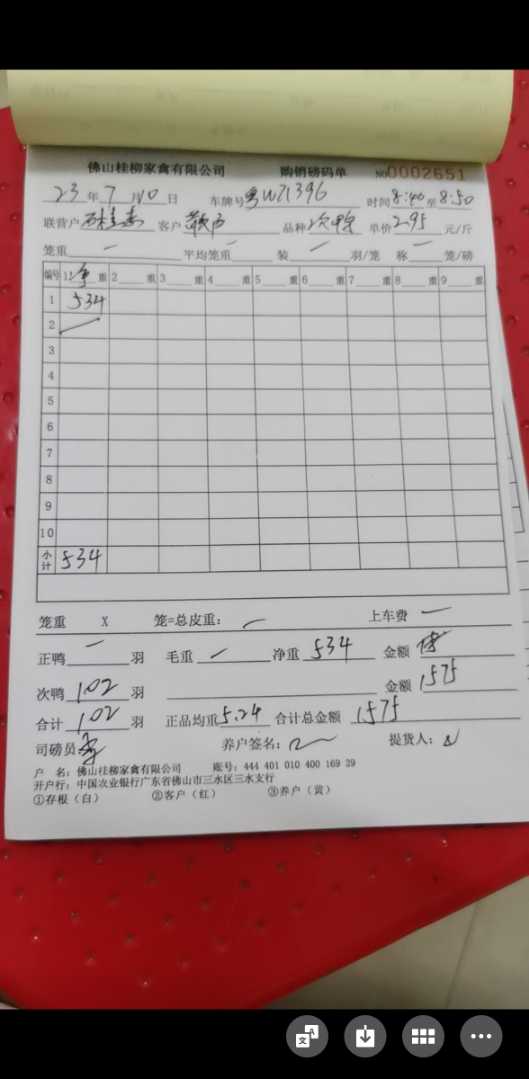 佛山桂柳家禽有限公司 购销磅码单 №0002651
23年7月10日 车牌号粤W71396 时间8:40至8:50
联营户 客户散户 品种次鸭 单价2.95元/斤
笼重 — 平均笼重 — 装 — 羽/笼 称 — 笼/磅
编号 1净重 2重 3重 4重 5重 6重 7重 8重 9重
1 534
2
3
4
5
6
7
8
9
10
小计 534
笼重 X 笼=总皮重: 上车费 —
正鸭 — 羽 毛重 净重534 金额
次鸭102羽 金额1575
合计102羽 正品均重5.24 合计总金额1575
司磅员 养户签名: 提货人:
户 名:佛山桂柳家禽有限公司 账号:444 401 010 400 169 39
开户行:中国农业银行广东省佛山市三水区三水支行
①存根(白) ②客户(红) ③养户(黄)